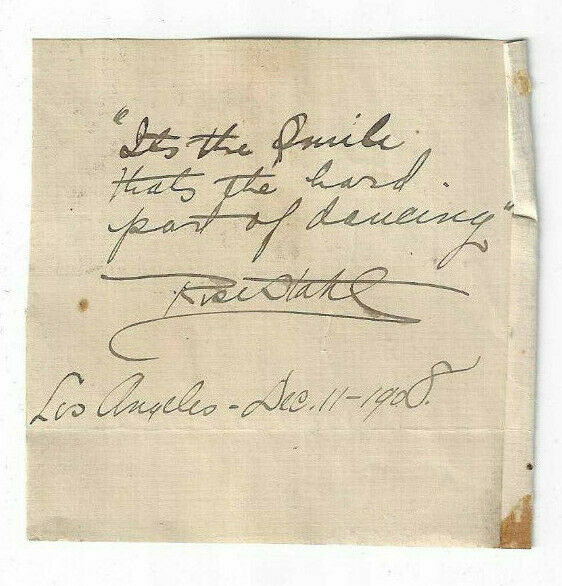 "Its the Smile
thats the hard
part of dancing"
Rose Stahl
Los Angeles - Dec. 11 - 1908.